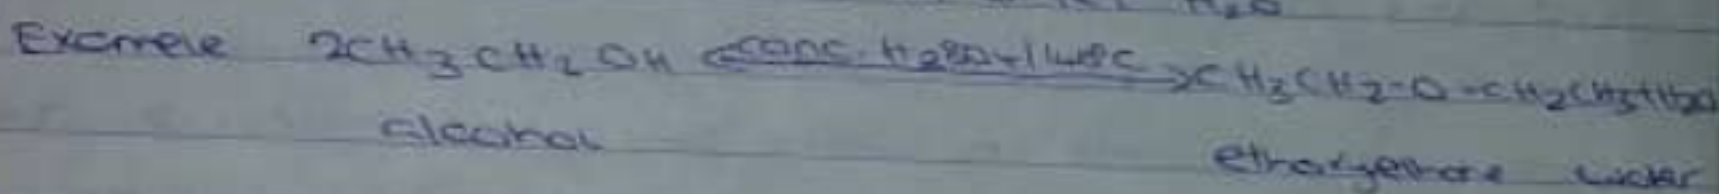 H₂O
Example 2CH₃CH₂OH conc. H₂SO₄ 140°C CH₃CH₂-O-CH₂CH₃+H₂O
alcohol ethoxyethane water